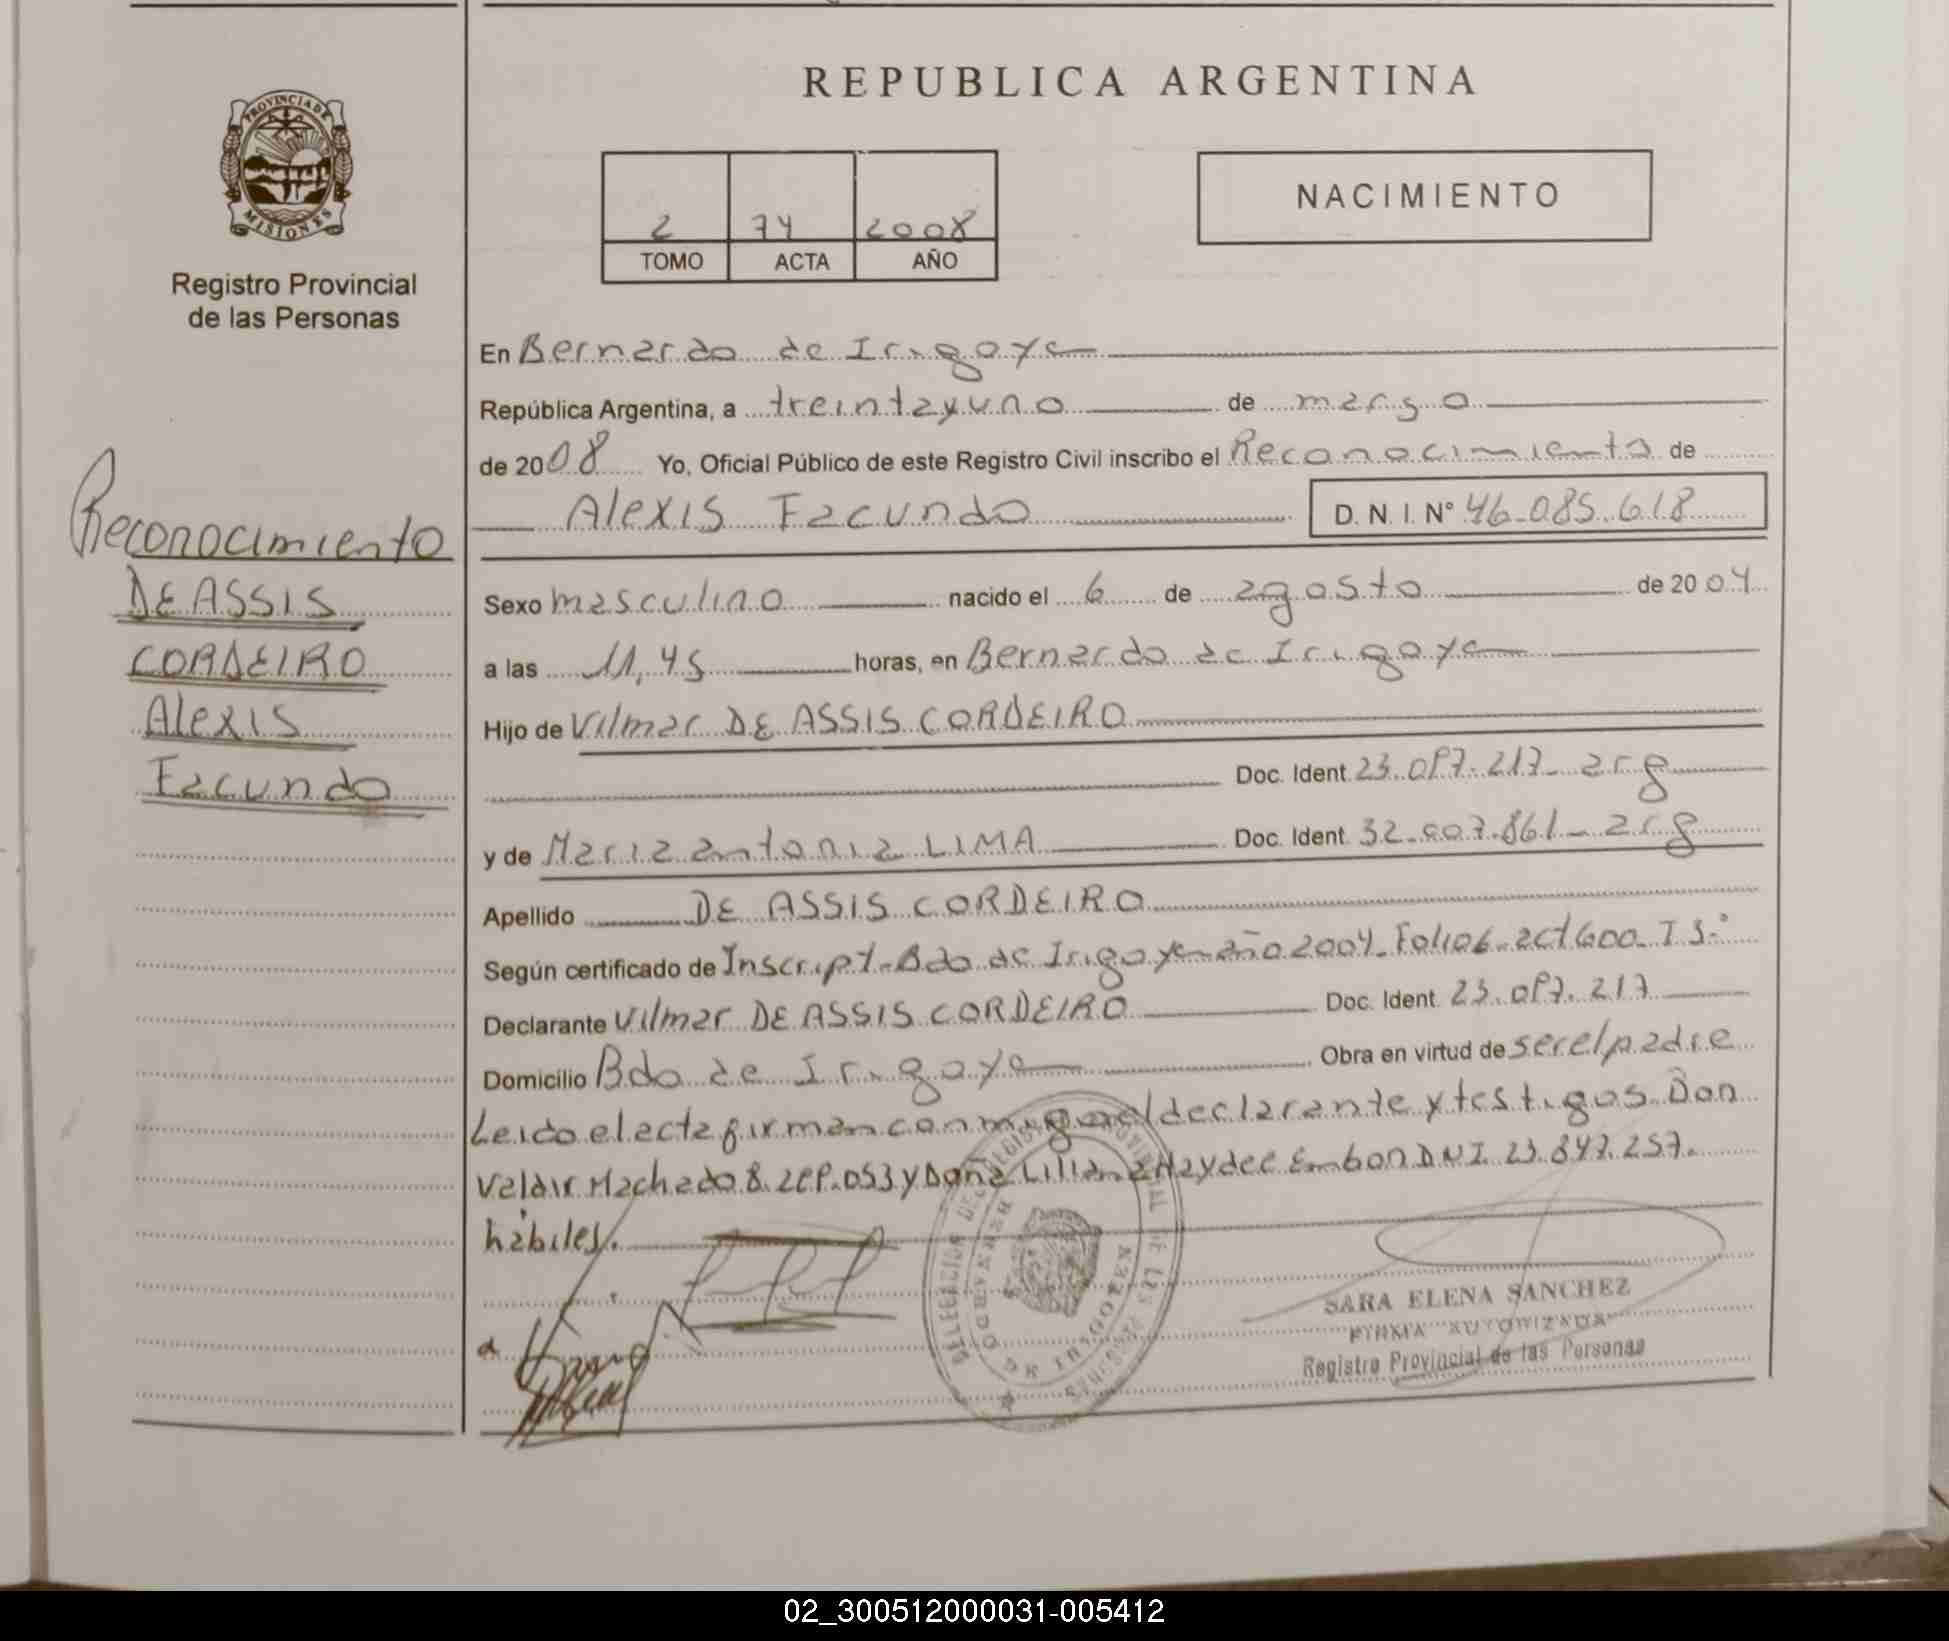 REPUBLICA ARGENTINA
PROVINCIA DE
MISIONES
Registro Provincial
de las Personas
2 74 2008
TOMO ACTA AÑO
NACIMIENTO
En Bernardo de Irigoye
República Argentina, a treintayuno de marso
de 2008 Yo, Oficial Público de este Registro Civil inscribo el Reconocimiento de
Alexis Facundo D. N. I. Nº 46.085.618
Reconocimiento
DE ASSIS
CORDEIRO
Alexis
Facundo
Sexo masculino nacido el 6 de agosto de 2004
a las 11,45 horas, en Bernardo de Irigoye
Hijo de Vilmar DE ASSIS CORDEIRO
Doc. Ident. 23.097.217- arg
y de Maria antonia LIMA Doc. Ident. 32.007.861- arg
Apellido DE ASSIS CORDEIRO
Según certificado de Inscript-Bdo de Irigoye año 2004. Folio 6- act 600- T 3.º
Declarante Vilmar DE ASSIS CORDEIRO Doc. Ident. 23.097.217
Domicilio Bdo de Irigoye Obra en virtud de ser el padre
Leido el acta firman conmigo el declarante y testigos Don
Valdir Machado 8. y Doña Liliana Haydee Embon DNI 23.847.257.
hábiles.
SARA ELENA SANCHEZ
FIRMA AUTORIZADA
Registro Provincial de las Personas
02_300512000031-005412